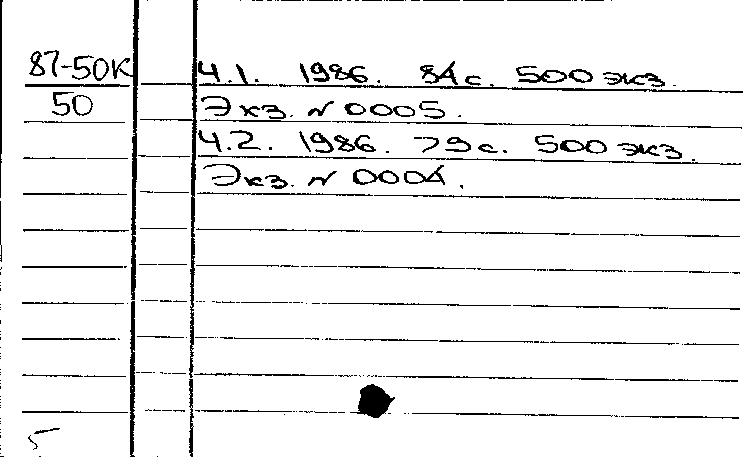 87-50К Ч.1. 1986. 84с. 500 экз.
50 Экз. № 0005.
Ч.2. 1986. 79с. 500 экз.
Экз. № 0004.
5